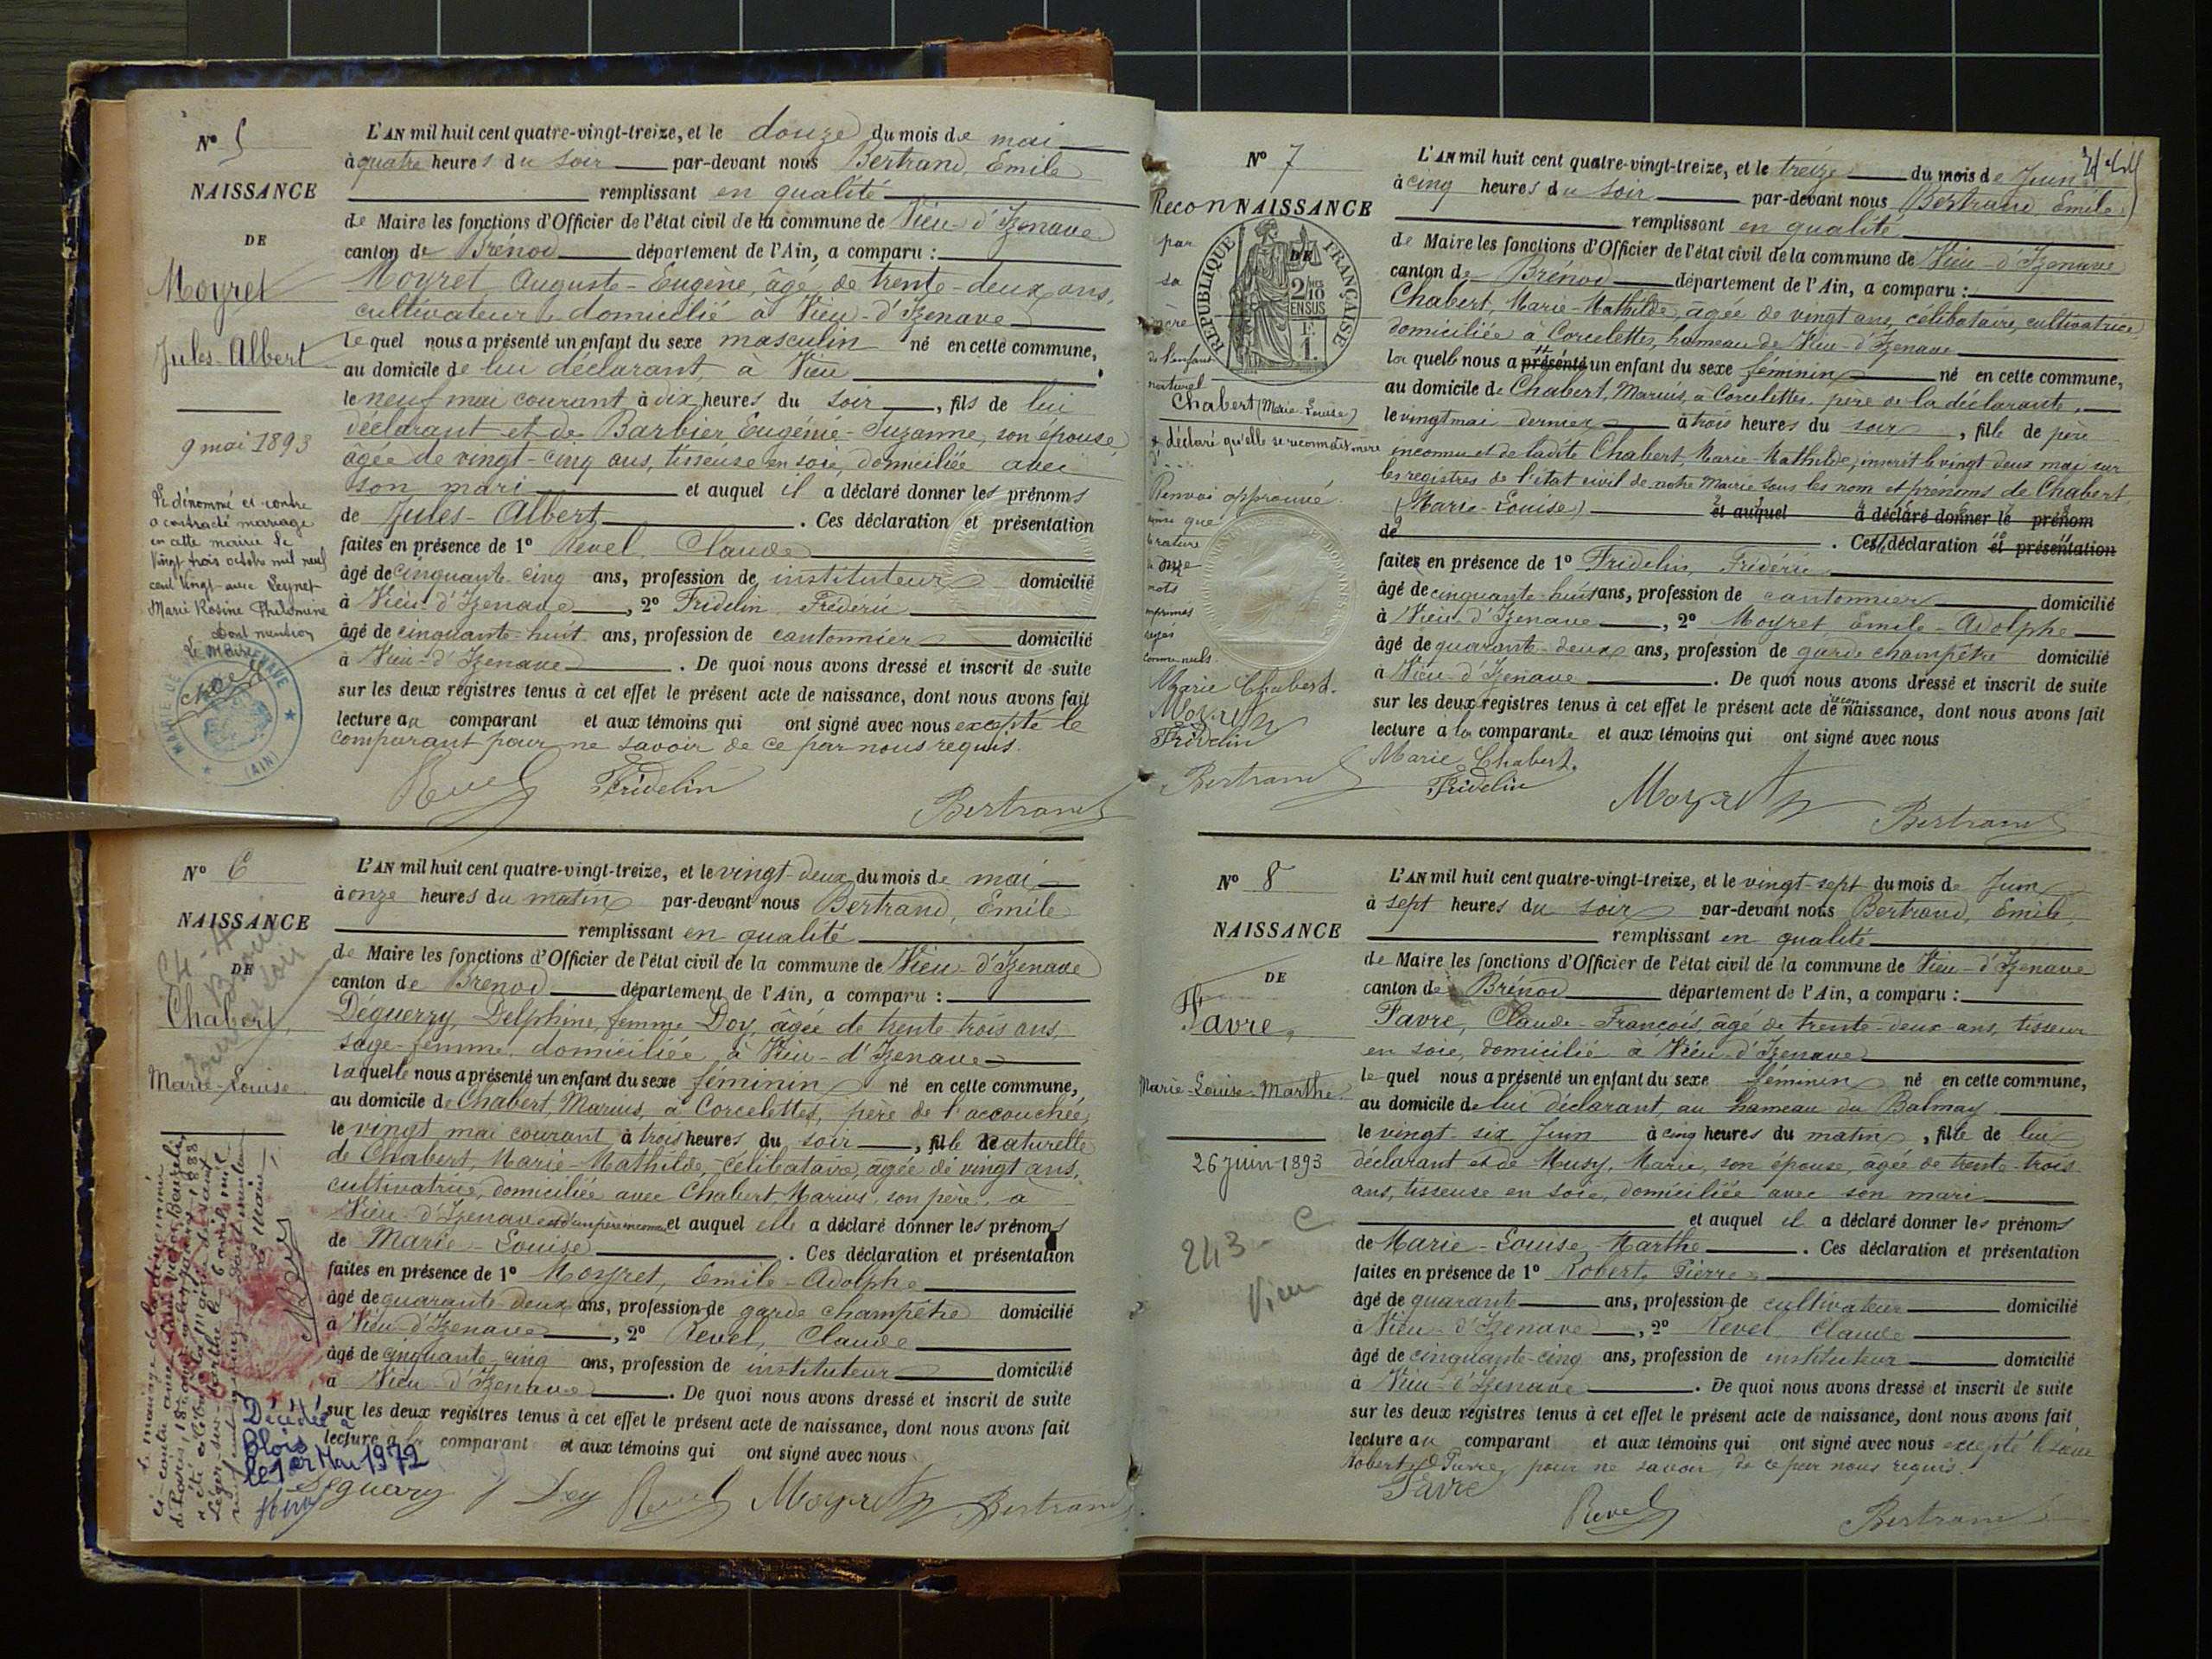 N° 5
NAISSANCE
DE
Moyret
Jules-Albert
9 mai 1893
Le dénommé ci-contre
a contracté mariage
en cette mairie le
vingt trois octobre mil neuf
cent vingt avec Peynet
Marie Rosine Philomène
Dont mention
Le Maire
MAIRIE DE VIEU D'IZENAVE
(AIN)
L'AN mil huit cent quatre-vingt-treize, et le douze du mois de mai
à quatre heures du soir par-devant nous Bertrand, Emile
remplissant en qualité
de Maire les fonctions d'Officier de l'état civil de la commune de Vieu-d'Izenave
canton de Brénod département de l'Ain, a comparu :
Moyret, Auguste-Eugène, âgé de trente-deux ans,
cultivateur, domicilié à Vieu-d'Izenave
le quel nous a présenté un enfant du sexe masculin né en cette commune,
au domicile de lui déclarant, à Vieu
le neuf mai courant à dix heures du soir, fils de lui
déclarant et de Barbier, Eugénie-Suzanne, son épouse,
âgée de vingt-cinq ans, tisseuse en soie, domiciliée avec
son mari et auquel il a déclaré donner les prénoms
de Jules-Albert. Ces déclaration et présentation
faites en présence de 1° Revel, Claude
âgé de cinquante-cinq ans, profession de instituteur domicilié
à Vieu-d'Izenave, 2° Fridelin Frédéric
âgé de cinquante-huit ans, profession de cantonnier domicilié
à Vieu-d'Izenave. De quoi nous avons dressé et inscrit de suite
sur les deux registres tenus à cet effet le présent acte de naissance, dont nous avons fait
lecture au comparant et aux témoins qui ont signé avec nous excepté le
comparant pour ne savoir de ce par nous requis.
Revel Fridelin
Bertrand
N° 6
NAISSANCE
DE
Chabert,
Marie-Louise
Décédée à
Blois
le 1er Mai 1972
L'AN mil huit cent quatre-vingt-treize, et le vingt-deux du mois de mai
à onze heures du matin par-devant nous Bertrand, Emile
remplissant en qualité
de Maire les fonctions d'Officier de l'état civil de la commune de Vieu-d'Izenave
canton de Brénod département de l'Ain, a comparu :
Déguerry, Delphine, femme Doy, âgée de trente trois ans,
sage-femme, domiciliée à Vieu-d'Izenave
laquelle nous a présenté un enfant du sexe féminin né en cette commune,
au domicile de Chabert, Marius, à Corcelettes, père de l'accouchée,
le vingt mai courant à trois heures du soir, fille naturelle
de Chabert, Marie-Mathilde, célibataire, âgée de vingt ans,
cultivatrice, domiciliée avec Chabert Marius, son père, à
Vieu-d'Izenave et d'un père inconnu et auquel elle a déclaré donner les prénoms
de Marie-Louise. Ces déclaration et présentation
faites en présence de 1° Moyret, Emile-Adolphe
âgé de quarante-deux ans, profession de garde champêtre domicilié
à Vieu-d'Izenave, 2° Revel, Claude
âgé de cinquante-cinq ans, profession de instituteur domicilié
à Vieu-d'Izenave. De quoi nous avons dressé et inscrit de suite
sur les deux registres tenus à cet effet le présent acte de naissance, dont nous avons fait
lecture à la comparant et aux témoins qui ont signé avec nous
Deguerry f Doy Revel Moyret Bertrand
N° 7
ReconNAISSANCE
par
sa
mère
de l'enfant
naturel
Chabert (Marie-Louise)
RÉPUBLIQUE FRANÇAISE
2/10 EN SUS
DE
déclaré qu'elle se reconnait mère
Renvoi approuvé
ainsi que
la rature
de onze
mots
imprimés
rayés
comme nuls.
Marie Chabert.
Moyret
Fridelin
Bertrand
L'AN mil huit cent quatre-vingt-treize, et le treize du mois de Juin
à cinq heures du soir par-devant nous Bertrand, Emile
remplissant en qualité
de Maire les fonctions d'Officier de l'état civil de la commune de Vieu-d'Izenave
canton de Brénod département de l'Ain, a comparu :
Chabert, Marie-Mathilde, âgée de vingt ans, célibataire, cultivatrice,
domiciliée à Corcelettes, hameau de Vieu-d'Izenave
la quelle nous a présenté un enfant du sexe féminin né en cette commune,
au domicile de Chabert, Marius, à Corcelettes, père de la déclarante,
le vingt mai dernier à trois heures du soir, fille de père
inconnu et de ladite Chabert, Marie-Mathilde, inscrit le vingt deux mai sur
les registres de l'état civil de notre Mairie sous les nom et prénoms de Chabert
(Marie-Louise) et auquel a déclaré donner le prénom
de. Cette déclaration et présentation
faites en présence de 1° Fridelin, Frédéric
âgé de cinquante-huit ans, profession de cantonnier domicilié
à Vieu-d'Izenave, 2° Moyret, Emile-Adolphe
âgé de quarante-deux ans, profession de garde champêtre domicilié
à Vieu-d'Izenave. De quoi nous avons dressé et inscrit de suite
sur les deux registres tenus à cet effet le présent acte de reconnaissance, dont nous avons fait
lecture à la comparante et aux témoins qui ont signé avec nous
Marie Chabert.
Fridelin
Moyret
Bertrand
N° 8
NAISSANCE
DE
Favre,
Marie-Louise-Marthe
26 juin 1893
243
Vieu
L'AN mil huit cent quatre-vingt-treize, et le vingt-sept du mois de Juin
à sept heures du soir par-devant nous Bertrand, Emile,
remplissant en qualité
de Maire les fonctions d'Officier de l'état civil de la commune de Vieu-d'Izenave
canton de Brénod département de l'Ain, a comparu :
Favre, Claude-François, âgé de trente-deux ans, tisseur
en soie, domicilié à Vieu-d'Izenave
le quel nous a présenté un enfant du sexe féminin né en cette commune,
au domicile de lui déclarant, au hameau du Balmay
le vingt-six Juin à cinq heures du matin, fille de lui
déclarant et de Musy, Marie, son épouse, âgée de trente-trois
ans, tisseuse en soie, domiciliée avec son mari
et auquel il a déclaré donner les prénoms
de Marie-Louise-Marthe. Ces déclaration et présentation
faites en présence de 1° Robert, Pierre
âgé de quarante ans, profession de cultivateur domicilié
à Vieu-d'Izenave, 2° Revel Claude
âgé de cinquante-cinq ans, profession de instituteur domicilié
à Vieu-d'Izenave. De quoi nous avons dressé et inscrit de suite
sur les deux registres tenus à cet effet le présent acte de naissance, dont nous avons fait
lecture au comparant et aux témoins qui ont signé avec nous excepté le sieur
Robert, Pierre, pour ne savoir, de ce par nous requis.
Favre
Revel
Bertrand